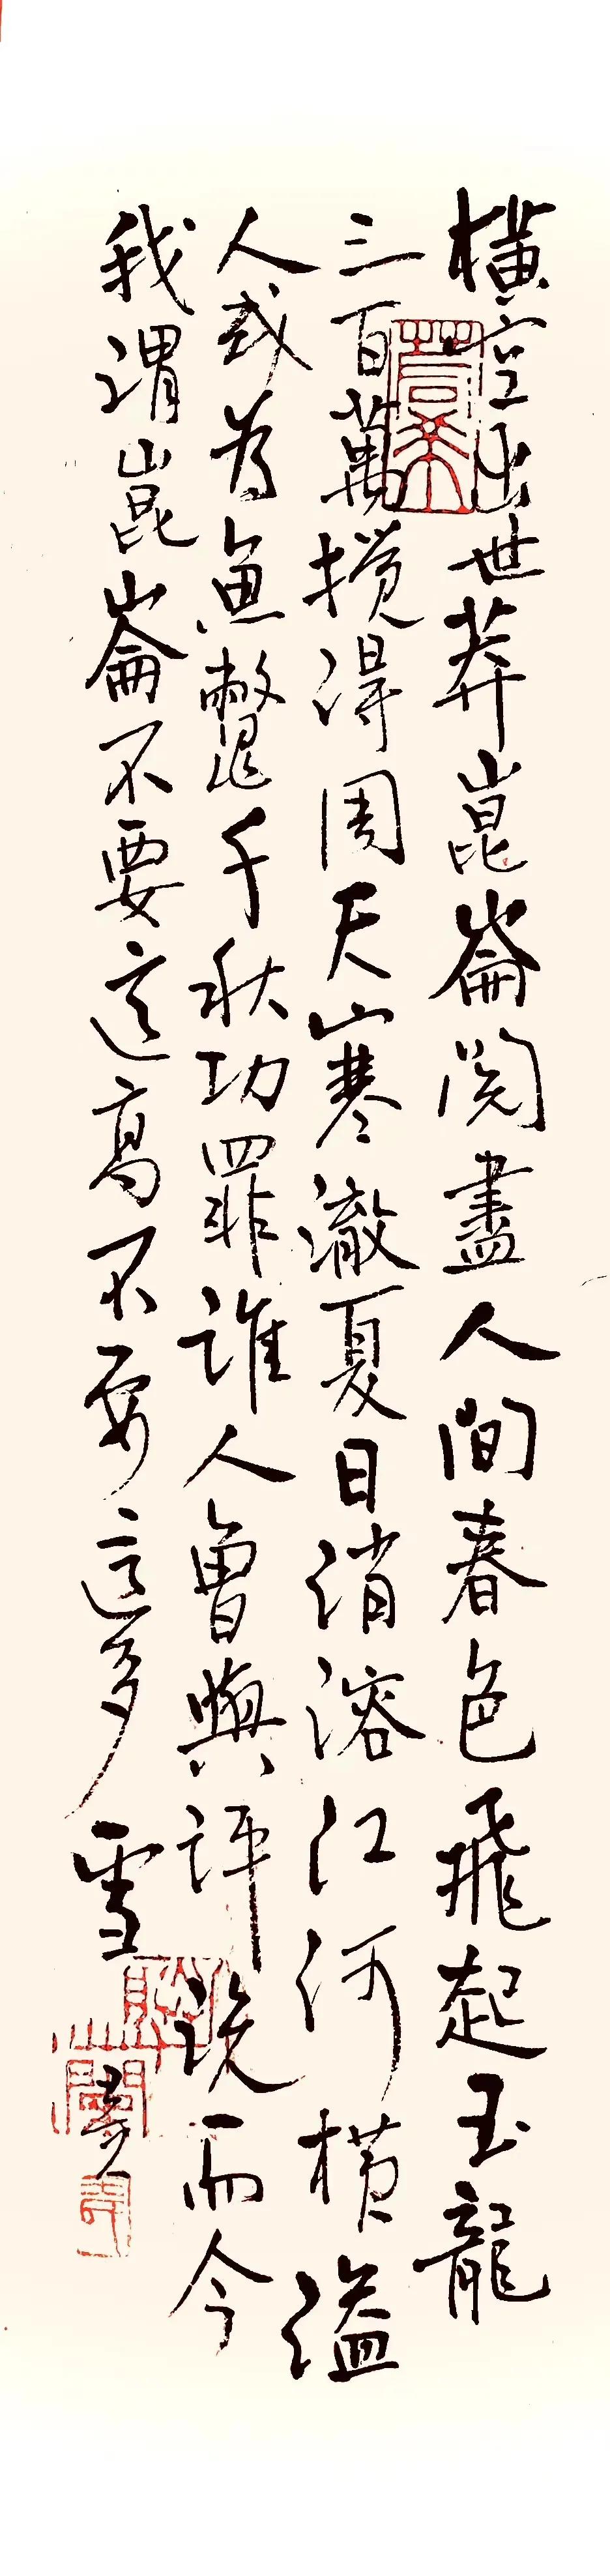 橫空出世莽崑崙閱盡人間春色飛起玉龍
三百萬攪得周天寒澈夏日消溶江河橫溢
人或為魚鱉千秋功罪誰人曾與評說而今
我謂崑崙不要這高不要這多雪